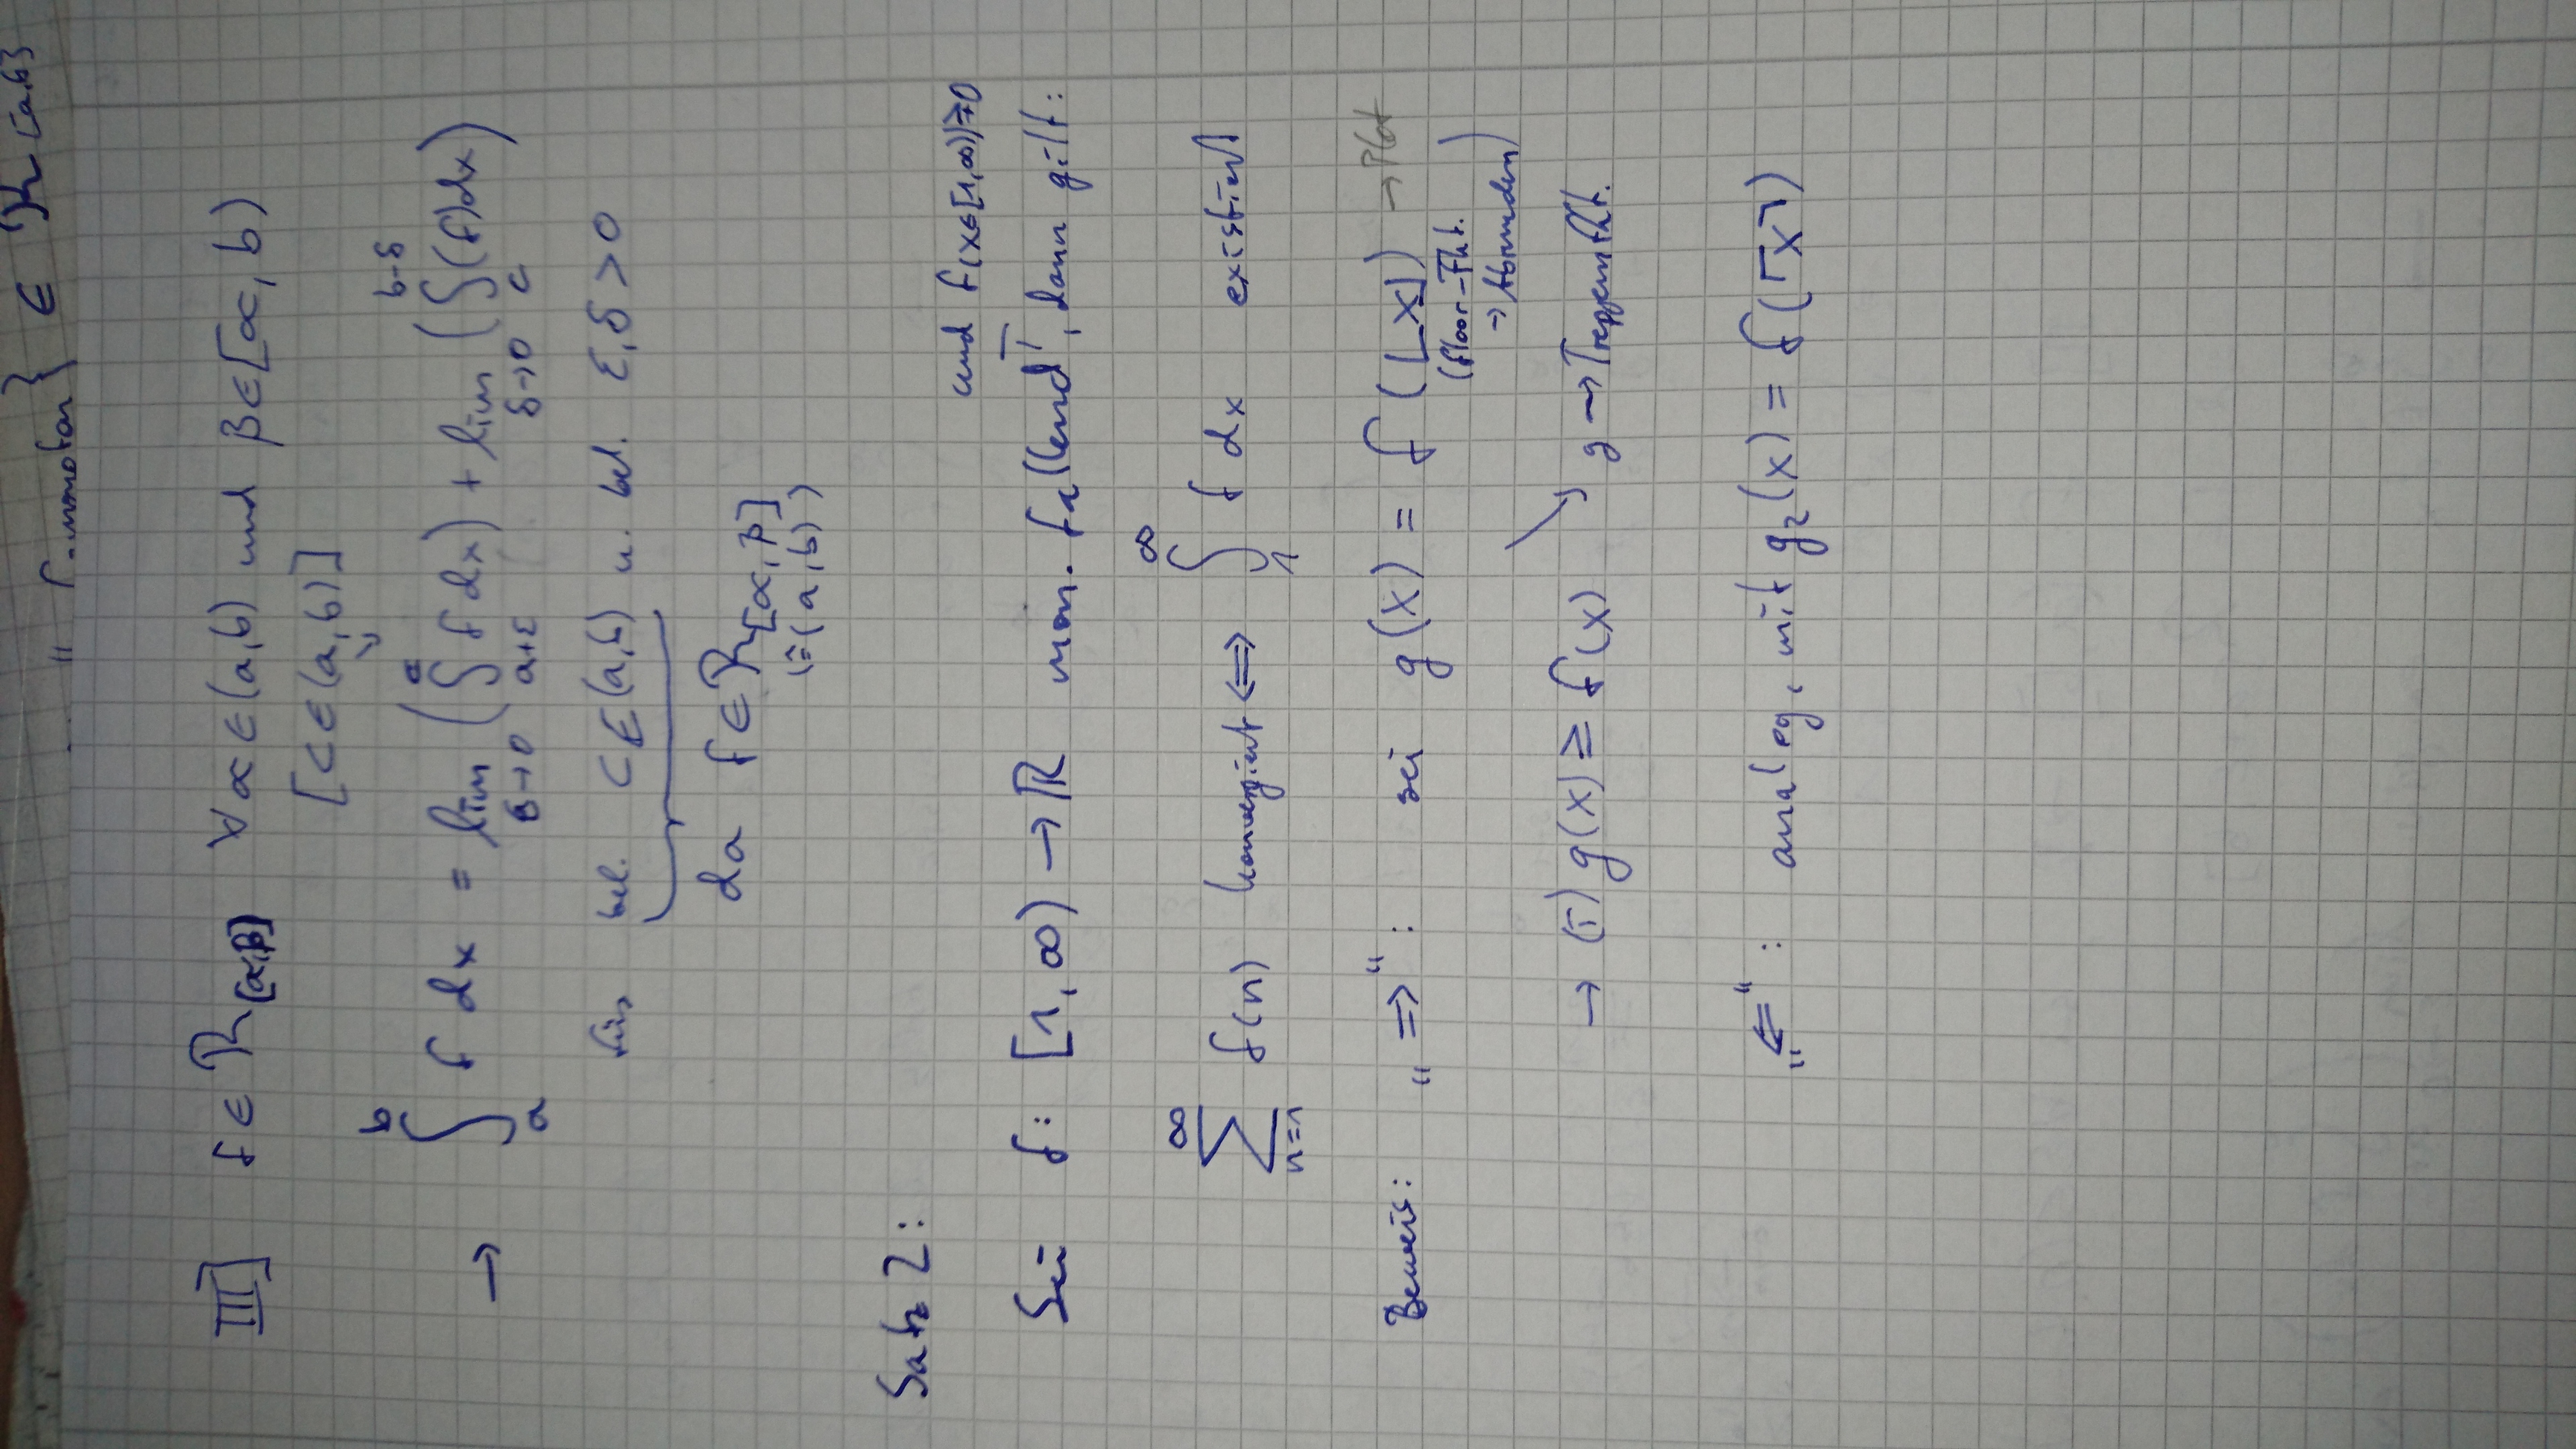 " f monoton} ∈ R[a,b]
III] f ∈ R[α,β] ∀ α ∈ (a,b) und β ∈ [α, b)
[c ∈ (a,b)]
→ ∫_a^b f dx = lim_{ε→0} (∫_{a+ε}^c f dx) + lim_{δ→0} (∫_c^{b-δ} (f) dx)
für bel. c ∈ (a,b) u. bel. ε, δ > 0
da f ∈ R[α, β]
(≙ (a, b))
Satz 2:
und f(x∈[1,∞)) ≥ 0
Sei f: [1, ∞) → ℝ mon. fallend, dann gilt:
∑_{n=1}^∞ f(n) konvergiert ⟺ ∫_1^∞ f dx existiert
Beweis: „⇒“: sei g(x) = f(⌊x⌋) → Plot
(floor-Fkt.
→ Abrunden)
→ (I) g(x) ≥ f(x) g → Treppenfkt.
„⇐“: analog, mit g₂(x) = f(⌈x⌉)